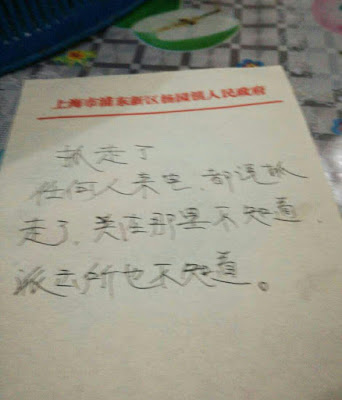 上海市浦东新区杨园镇人民政府
抓走了
任何人来电、都说抓
走了、关在那里不知道、
派出所也不知道。